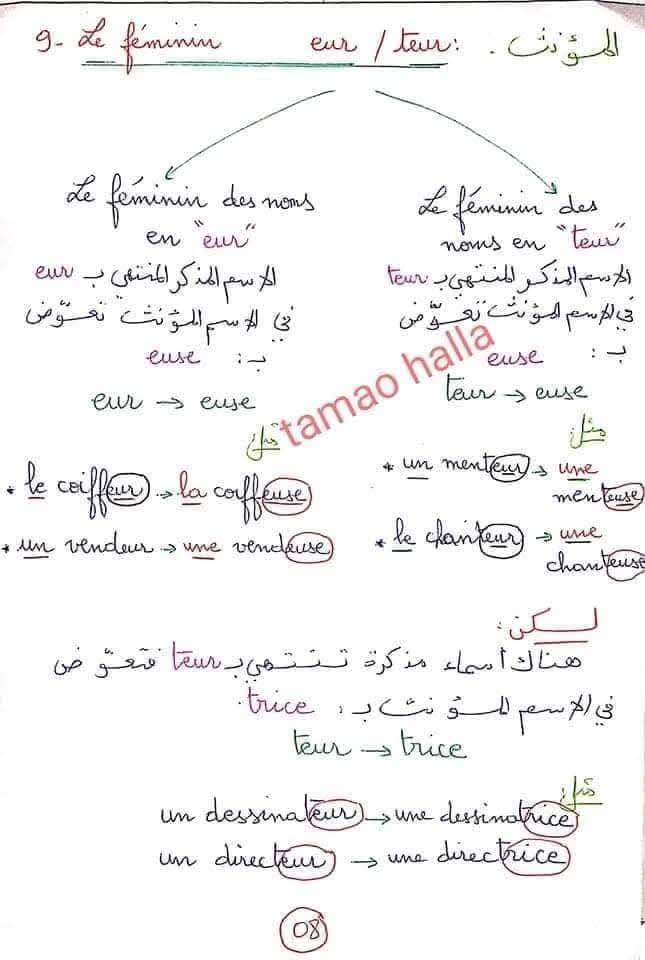 9- Le féminin eur / teur: المؤنث.
Le féminin des noms
en "eur"
الاسم المذكر المنتهي بـ eur
في الاسم المؤنث تعوّض
بـ: euse
eur → euse
مثل:
* le coiffeur → la coiffeuse
* un vendeur → une vendeuse
Le féminin des
noms en "teur"
الاسم المذكر المنتهي بـ teur
في الاسم المؤنث تعوّض
بـ: euse
teur → euse
مثل:
* un menteur → une
menteuse
* le chanteur → une
chanteuse
tamao halla
لكن:
هناك أسماء مذكرة تنتهي بـ teur فتعوّض
في الاسم المؤنث بـ: trice
teur → trice
مثل:
un dessinateur → une dessinatrice
un directeur → une directrice
08